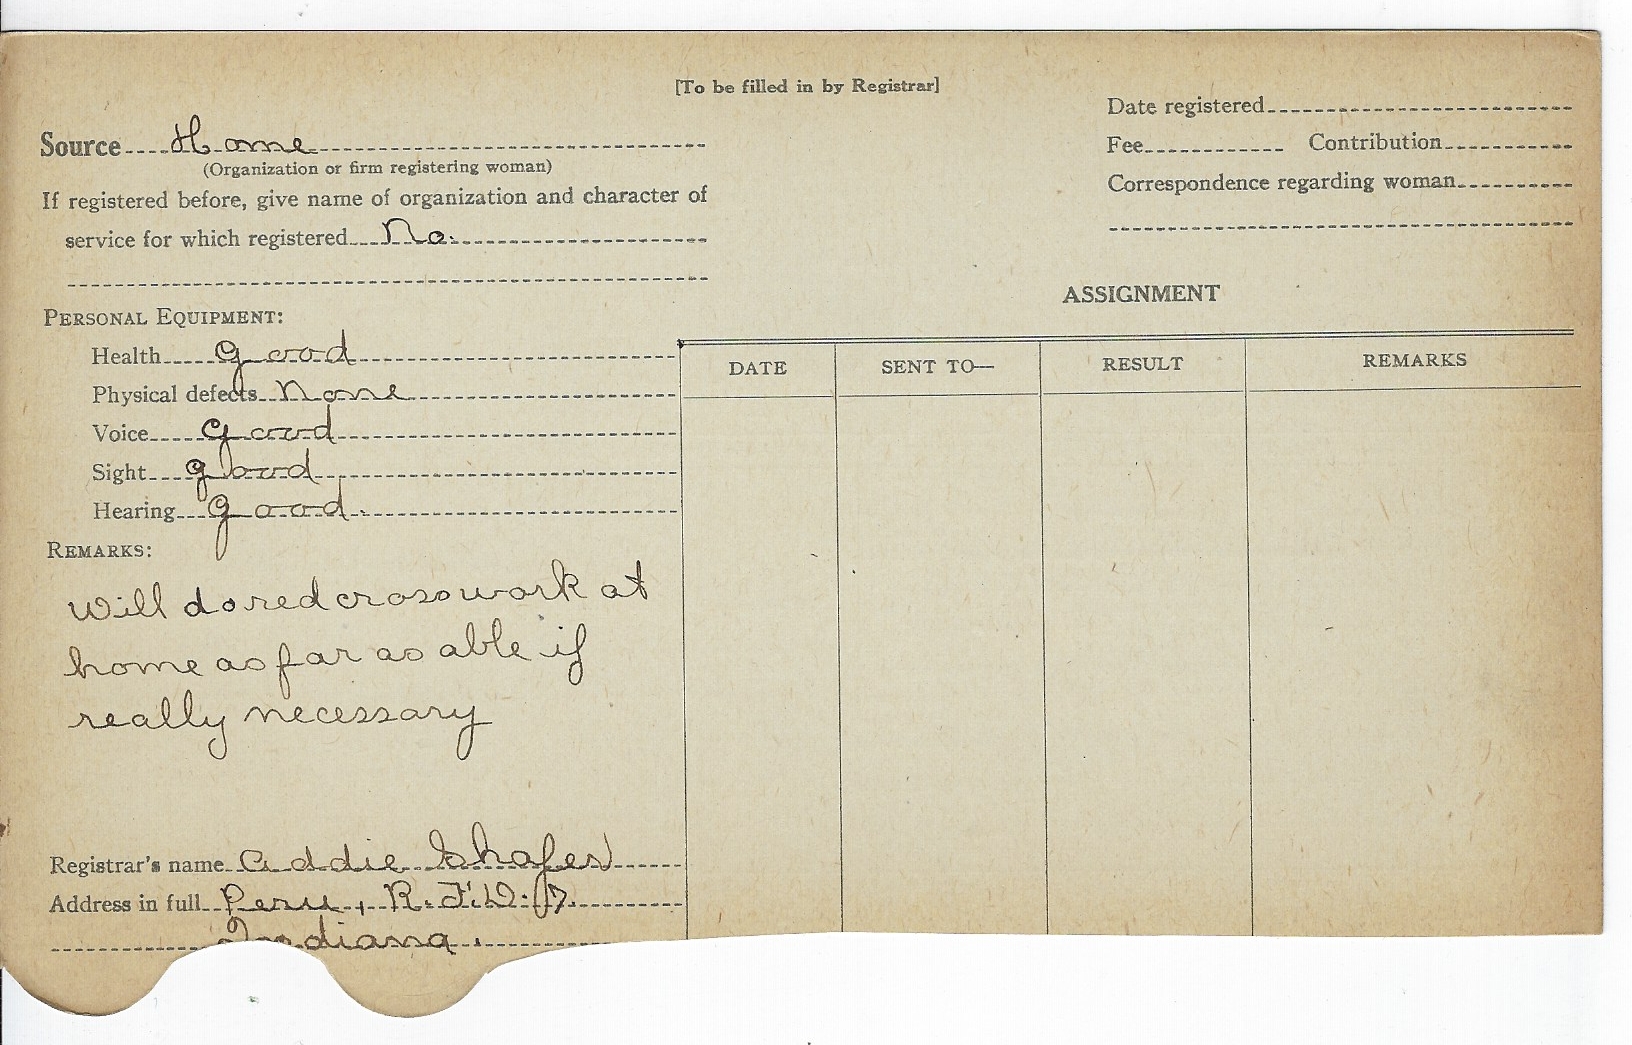 [To be filled in by Registrar]
Source Home
(Organization or firm registering woman)
If registered before, give name of organization and character of
service for which registered No.
PERSONAL EQUIPMENT:
Health good
Physical defects None
Voice good
Sight good
Hearing good.
REMARKS:
Will do red cross work at
home as far as able if
really necessary
Registrar's name Addie Shafer
Address in full Peru, R.F.D. 7.
Indiana.
Date registered
Fee Contribution
Correspondence regarding woman
ASSIGNMENT
DATE SENT TO— RESULT REMARKS